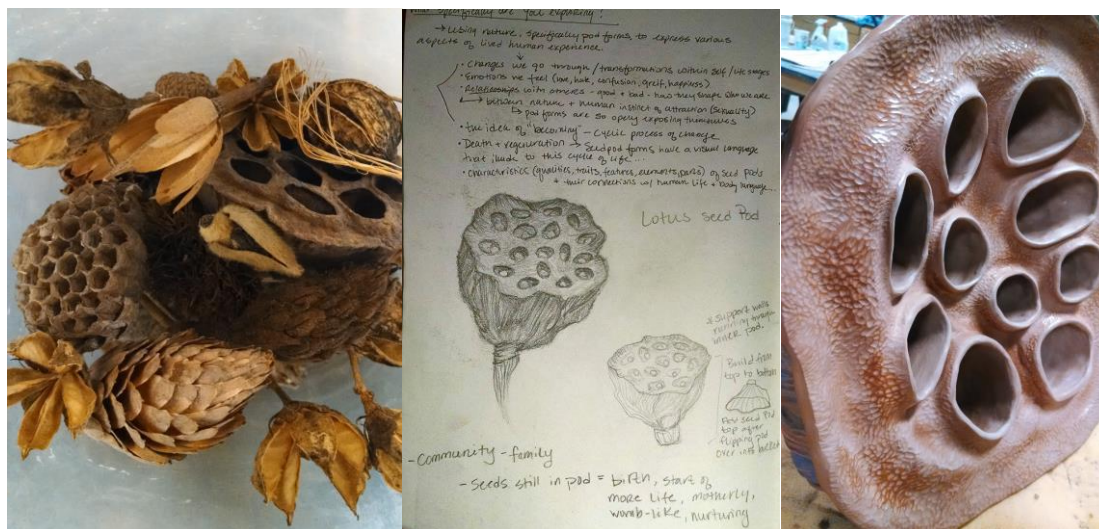 What specifically are you exploring?
→ Using nature, specifically pod forms, to express various
aspects of lived human experience.
• Changes we go through / transformations within self / life stages
• Emotions we feel (love, hate, confusion, greif, happiness)
• Relationships with others - good + bad - how they shape who we are
between nature + human instinct of attraction (sexuality)
pod forms are so openly exposing themselves
• the idea of "becoming" - cyclic process of change
• Death + regeneration → seedpod forms have a visual language
that leads to this cycle of life...
• Characteristics (qualities, traits, features, elements, parts) of seed pods
+ their connections w/ human life + body language...
Lotus Seed Pod
* support walls
running through
inner pod.
Build from
top to bottom
seed pod
top after
flipping pod
over into
- Community - family
- Seeds still in pod = birth, start of
more life, motherly,
womb-like, nurturing